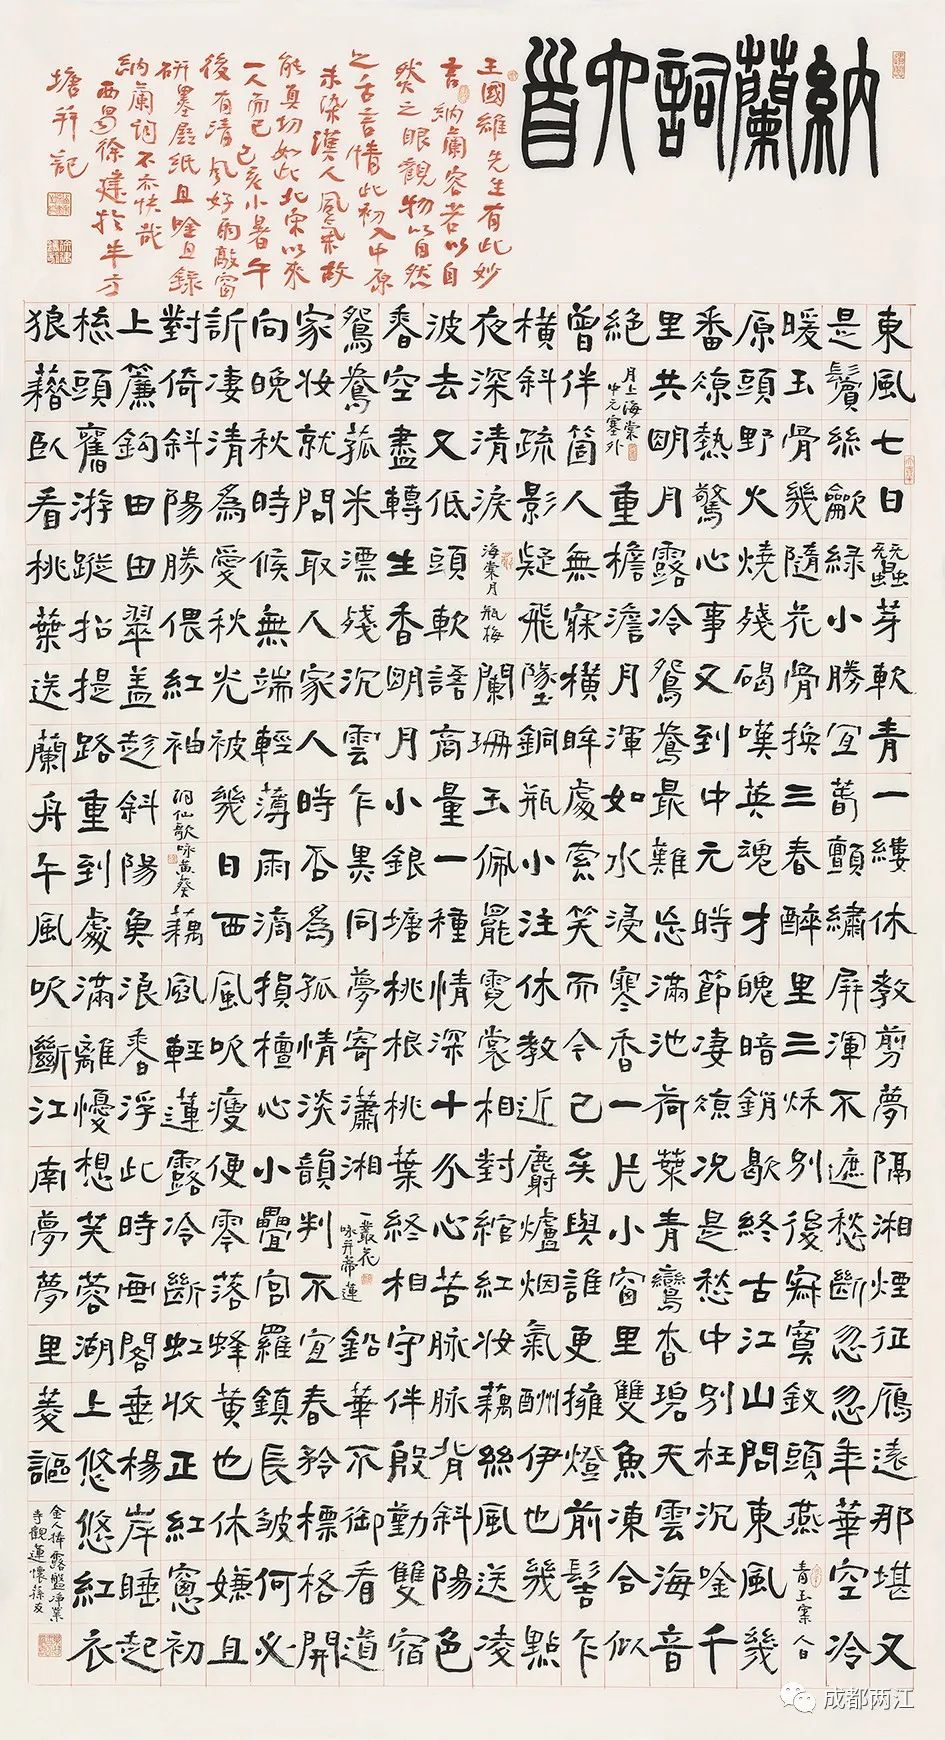 納蘭詞六首
東風七日蠶芽軟青一縷休教剪夢隔湘煙征鴈遠那堪又
是鬢絲龡綠小勝宜萅顫繡屏渾不遮愁斷忽忽年華空冷
暖玉骨幾隨花骨換三春醉里三秋別後寂寞釵頭燕
青玉案 人日
原頭野火燒殘碣嘆英魂才魄暗銷歇終古江山問東風幾
番涼熱驚心事又到中元時節淒涼況是愁中別枉沉唫千
里共明月露冷鴛鴦最難忘滿池荷葉青鸞杳碧天雲海音
絕
月上海棠
中元塞外
重檐澹月渾如水浸寒香一片小窗里雙魚凍合似
曾伴箇人無寐橫眸處索笑而今已矣與誰更擁燈前髻乍
橫斜疏影疑飛墜銅瓶小注休教近麝爐烟氣酬伊也幾點
夜深清淚
海棠月 瓶梅
闌珊玉佩罷霓裳相對綰紅妝藕絲風送凌
波去又低頭軟語商量一種情深十分心苦脉脉背斜陽色
香空盡轉生香明月小銀塘桃根桃葉終相守伴殷勤雙宿
鴛鴦菰米漂殘沉雲乍黑同夢寄瀟湘
一叢花
咏并蒂蓮
鉛華不御看道
家妝就問取人家人時否為孤情淡韻判不宜春矜標格開
向晚秋時候無端輕薄雨滴損檀心小疊宮羅鎮長皺何必
訴淒清為愛秋光被幾日西風吹瘦便零落蜂黃也休嫌且
對倚斜陽勝偎紅袖
洞仙歌咏黃葵
藕風輕蓮露冷斷虹收正紅窻初
上簾鈎田田翠蓋趁斜陽魚浪香浮此時畫閣垂楊岸睡起
梳頭舊游蹤招提路重到處滿離憂想芙蓉湖上悠悠紅衣
狼藉臥看桃葉送蘭舟午風吹斷江南夢夢里菱謳
金人捧露盤淨業
寺觀蓮懷蓀友
王國維先生有此妙
言納蘭容若以自
然之眼觀物以自然
之舌言情此初入中原
未染漢人風氣故
能真切如此北宋以來
一人而已己亥小暑午
後有清風好雨敲窗
研墨展紙且唫且錄
納蘭詞不亦快哉
西昌徐建於半方
塘并記
成都两江